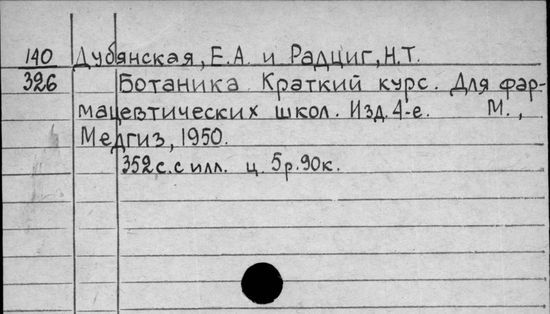 140 Дубянская, Е.А. и Радциг, Н.Т.
326 Ботаника. Краткий курс. Для фар-
мацевтических школ. Изд. 4-е. М.,
Медгиз, 1950.
352 с. с илл. ц. 5р.90к.